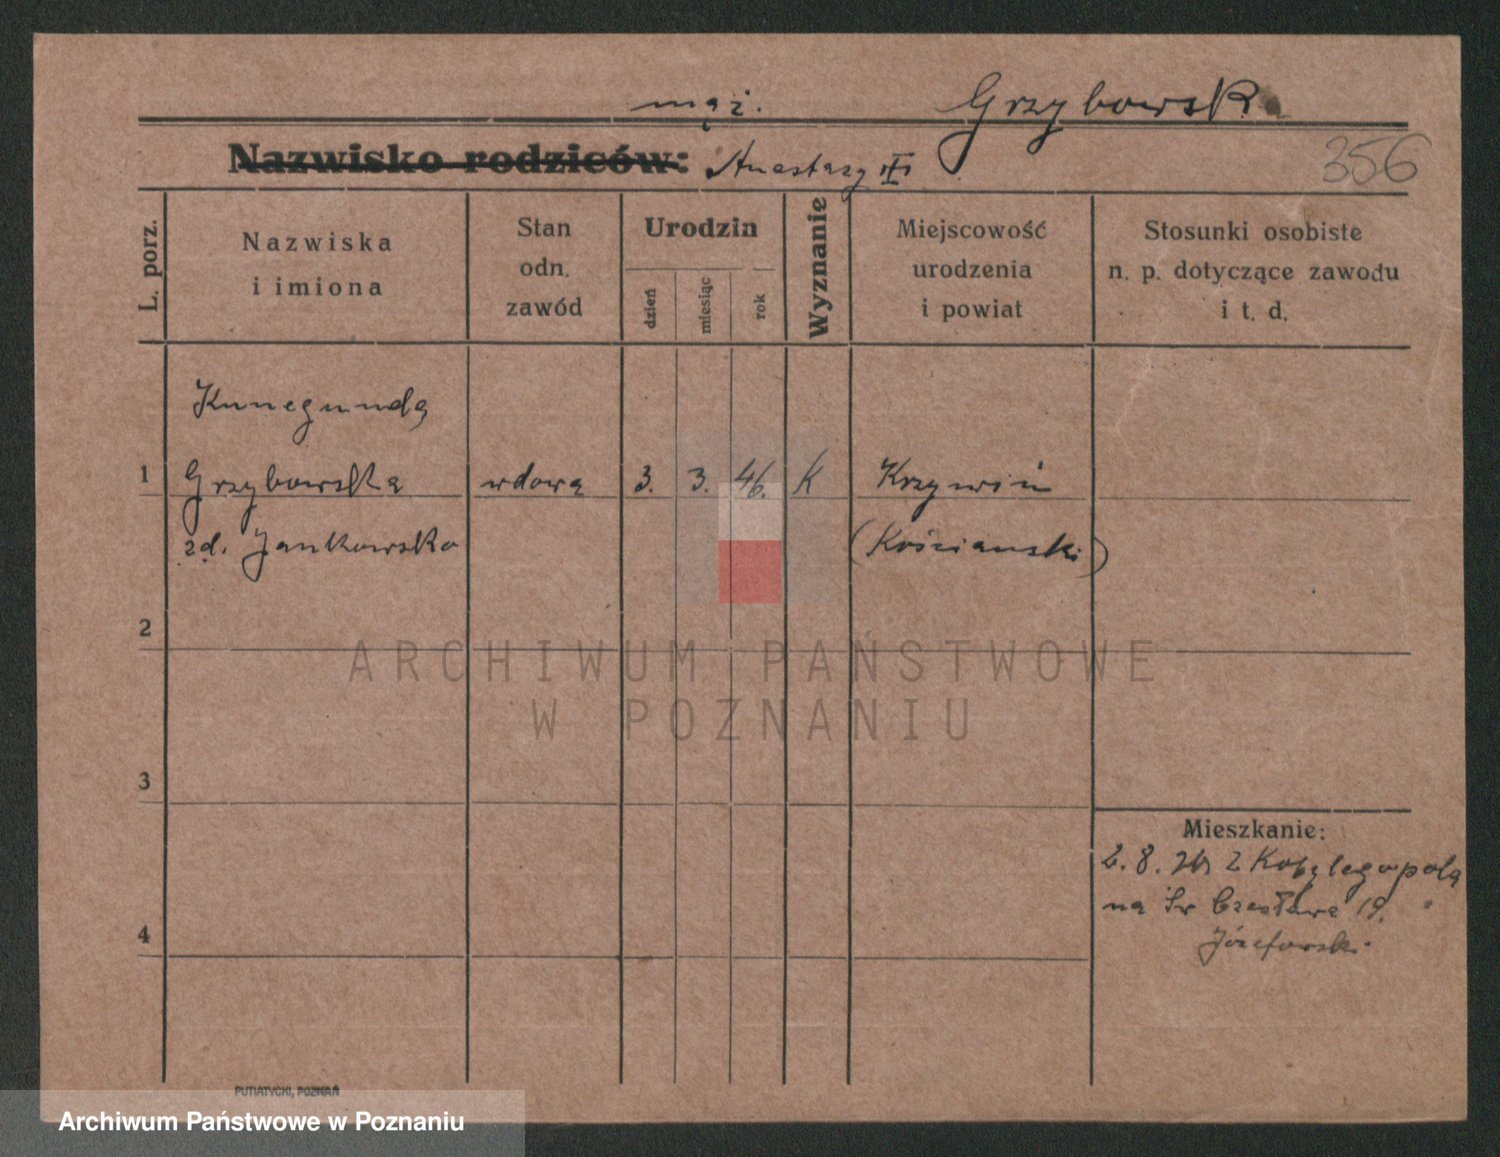 mąż. Grzybowski
Nazwisko rodziców: Anastazy
356
L. porz.
Nazwiska
i imiona
Stan
odn.
zawód
Urodzin
dzień
miesiąc
rok
Wyznanie
Miejscowość
urodzenia
i powiat
Stosunki osobiste
n. p. dotyczące zawodu
i t. d.
Kunegunda
1 Grzybowska wdowa 3. 3. 46. K Krzywiń
zd. Jankowska (Kościański)
2
ARCHIWUM PAŃSTWOWE
W POZNANIU
3
Mieszkanie:
2. 8. z Kobylegopola
na Św Czesława 19.
4
Józefowski
PUTIATYCKI, POZNAŃ
Archiwum Państwowe w Poznaniu